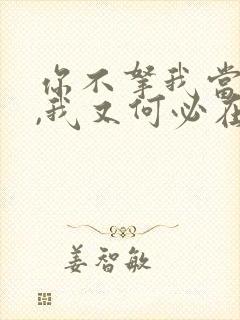 你不拏我当
,我又何必在
姜智敏